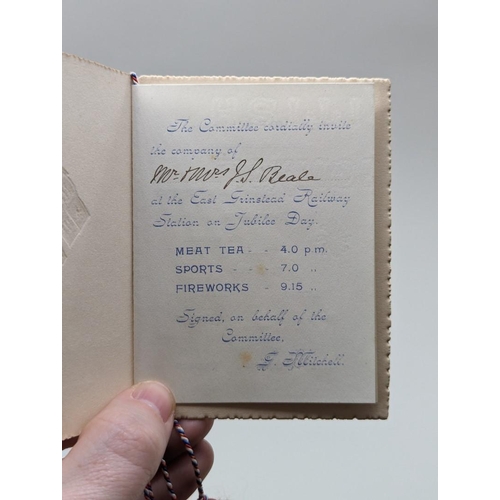 The Committee cordially invite
the company of
Mr & Mrs J. S. Beale
at the East Grinstead Railway
Station on Jubilee Day.
MEAT TEA - - 4.0 p.m.
SPORTS - - - 7.0 ,,
FIREWORKS - 9.15 ,,
Signed, on behalf of the
Committee,
G. Mitchell.